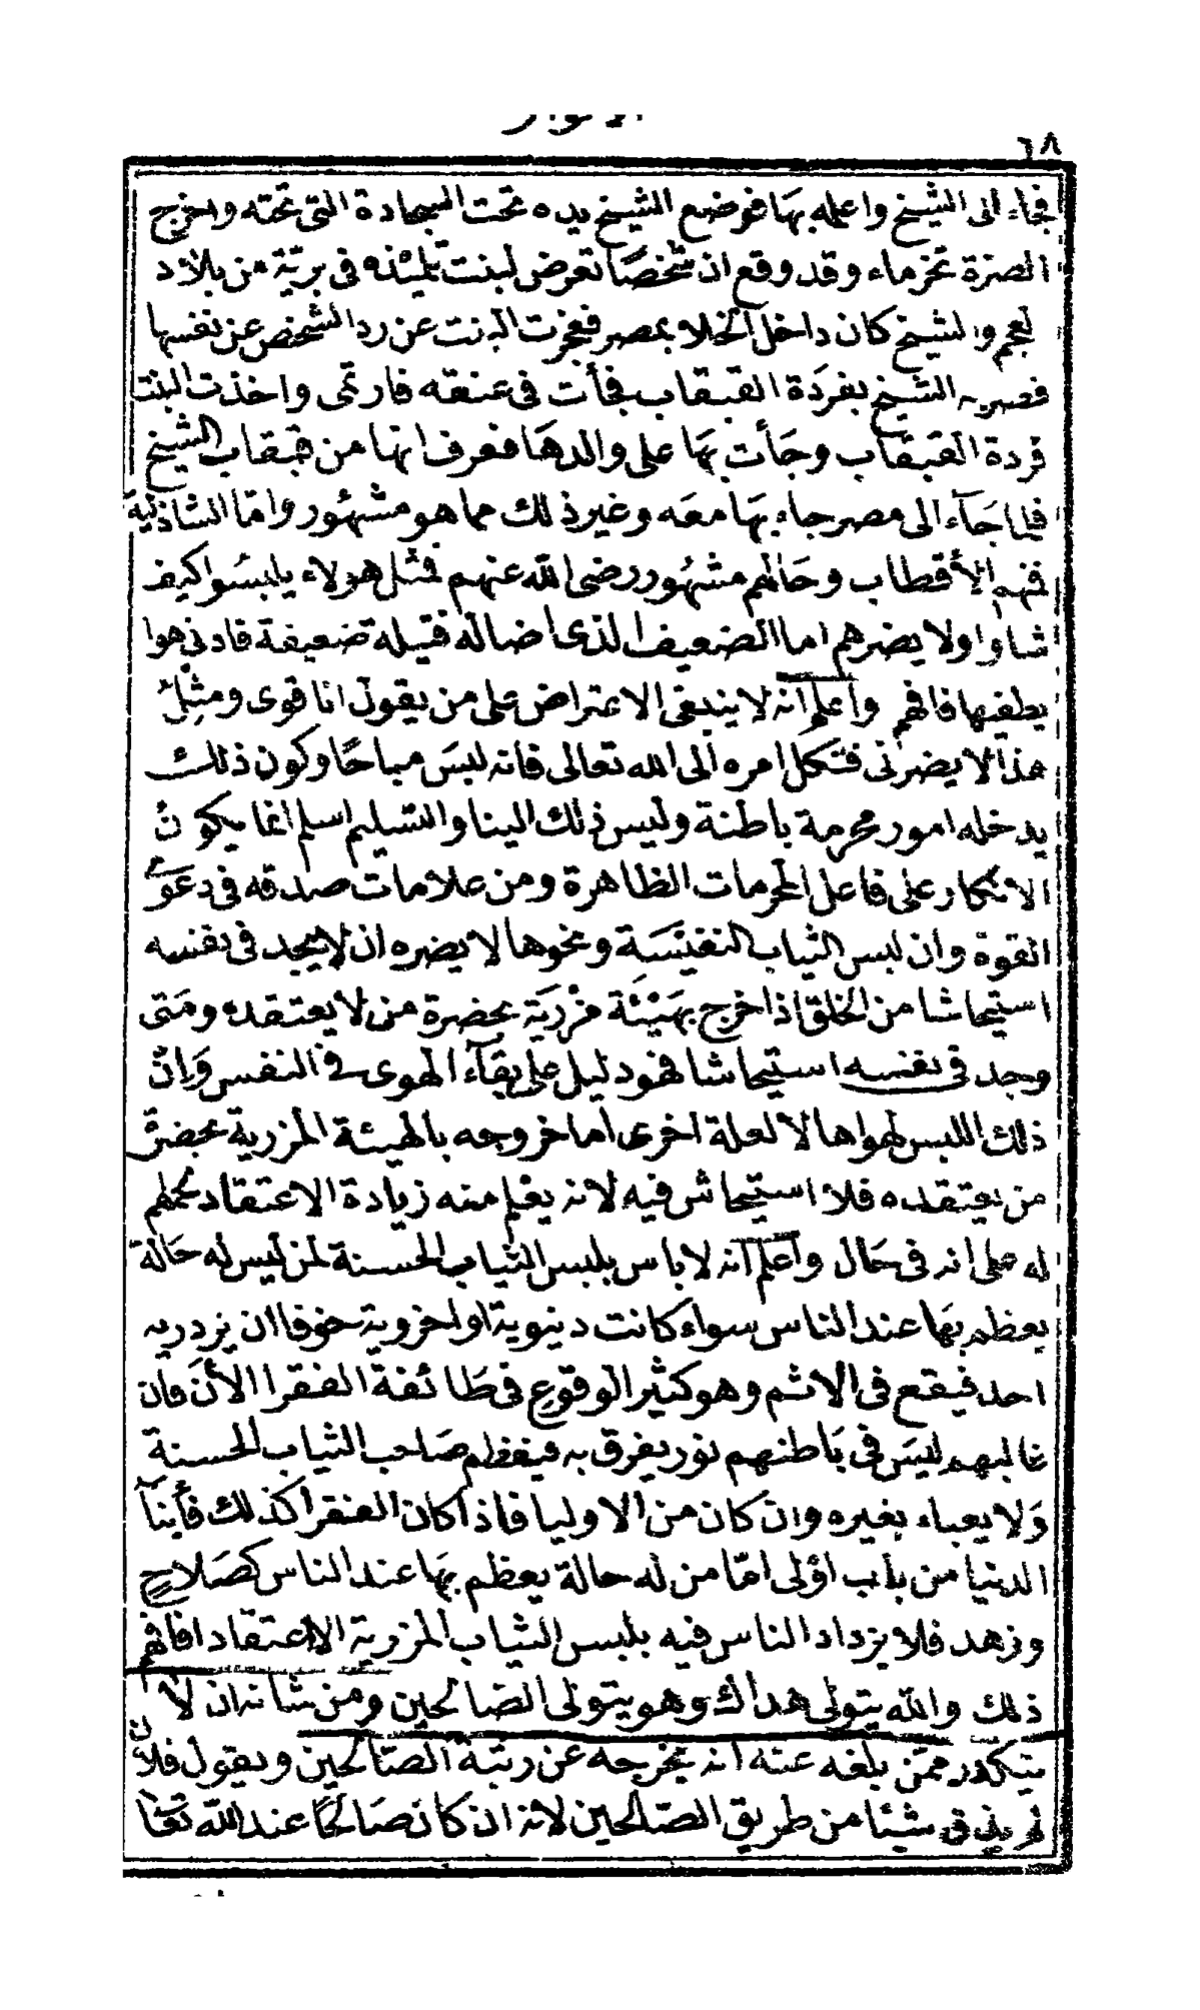 ٦٨
فجاء الى الشيخ واعلمه بها فوضع الشيخ يده تحت السجادة التى تحته واخرج
الصرة تخرماء وقد وقع ان شخصا تعرض لبنت تلميذه فى برية من بلاد
لعجم والشيخ كان داخل الخلا بمصر فعجزت البنت عن رد الشخص عن نفسها
فضربه الشيخ بفردة القبقاب فجأت فى عنقه فارتمى واخذت البنت
فردة القبقاب وجأت بها على والدها فعرف انها من قبقاب الشيخ
فلما جآء الى مصر جاء بها معه وغير ذلك مما هو مشهور واما الشاذلية
فمنهم الأقطاب وحالهم مشهور رضى الله عنهم فمثل هولاء يلبسوا كيف
شاوا ولا يضرهم اما الضعيف الذى اضاله فتيلة ضعيفة فادنى هوا
يطفيها فافهم واعلم انه لا ينبغى الاعتراض على من يقول انا قوى ومثل
هذا لا يضرنى فتكل امره الى الله تعالى فانه لبس مباحا وكون ذلك
يدخله امور محرمة باطنة وليس ذلك الينا والتسليم اسلم انما يكون
الانكار على فاعل المحرمات الظاهرة ومن علامات صدقه فى دعوى
القوة وان لبس الثياب النفيسة ونحوها لا يضره ان لا يجد فى نفسه
استيحاشا من الخلق اذا خرج بهيئة مزرية بحضرة من لا يعتقده ومتى
وجد فى نفسه استيحاشا فهو دليل على بقآء الهوى فى النفس وان
ذلك اللبس لهواها لا لعلة اخرى اما خروجه بالهيئة المزرية بحضرة
من يعتقده فلا استيحاش فيه لانه يعلم منه زيادة الاعتقاد بحملهم
له على انه فى حال واعلم انه لا باس بلبس الثياب الحسنة لمن ليس له حالة
يعظم بها عند الناس سواء كانت دنيوية او اخروية خوفا ان يزدريه
احد فيقع فى الاثم وهو كثير الوقوع فى طائفة الفقرا الأن فان
غالبهم ليس فى باطنهم نور يفرق به فيعظم صاحب الثياب الحسنة
ولا يعباء بغيره وان كان من الاوليا فاذا كان الفقرا كذلك فأبنآ
الدنيا من باب اولى اما من له حالة يعظم بها عند الناس كصلاح
وزهد فلا يزداد الناس فيه بلبس الثياب المزرية الا اعتقادا فافهم
ذلك والله يتولى هداك وهو يتولى الصالحين ومن شانه ان لا
يتكدر ممن بلغه عنه انه يخرجه عن رتبة الصالحين ويقول فلان
لم يبق فى شيئا من طريق الصالحين لانه ان كان صالحا عند الله تعا